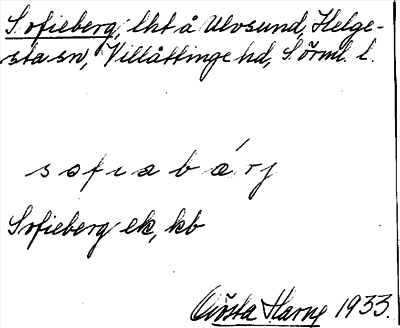 Sofieberg, lht å Ulvsund, Helge-
sta sn, Villåttinge hd, Sörml. l.
sofiabárj
Sofieberg ek, kb
Gösta Harne 1933.